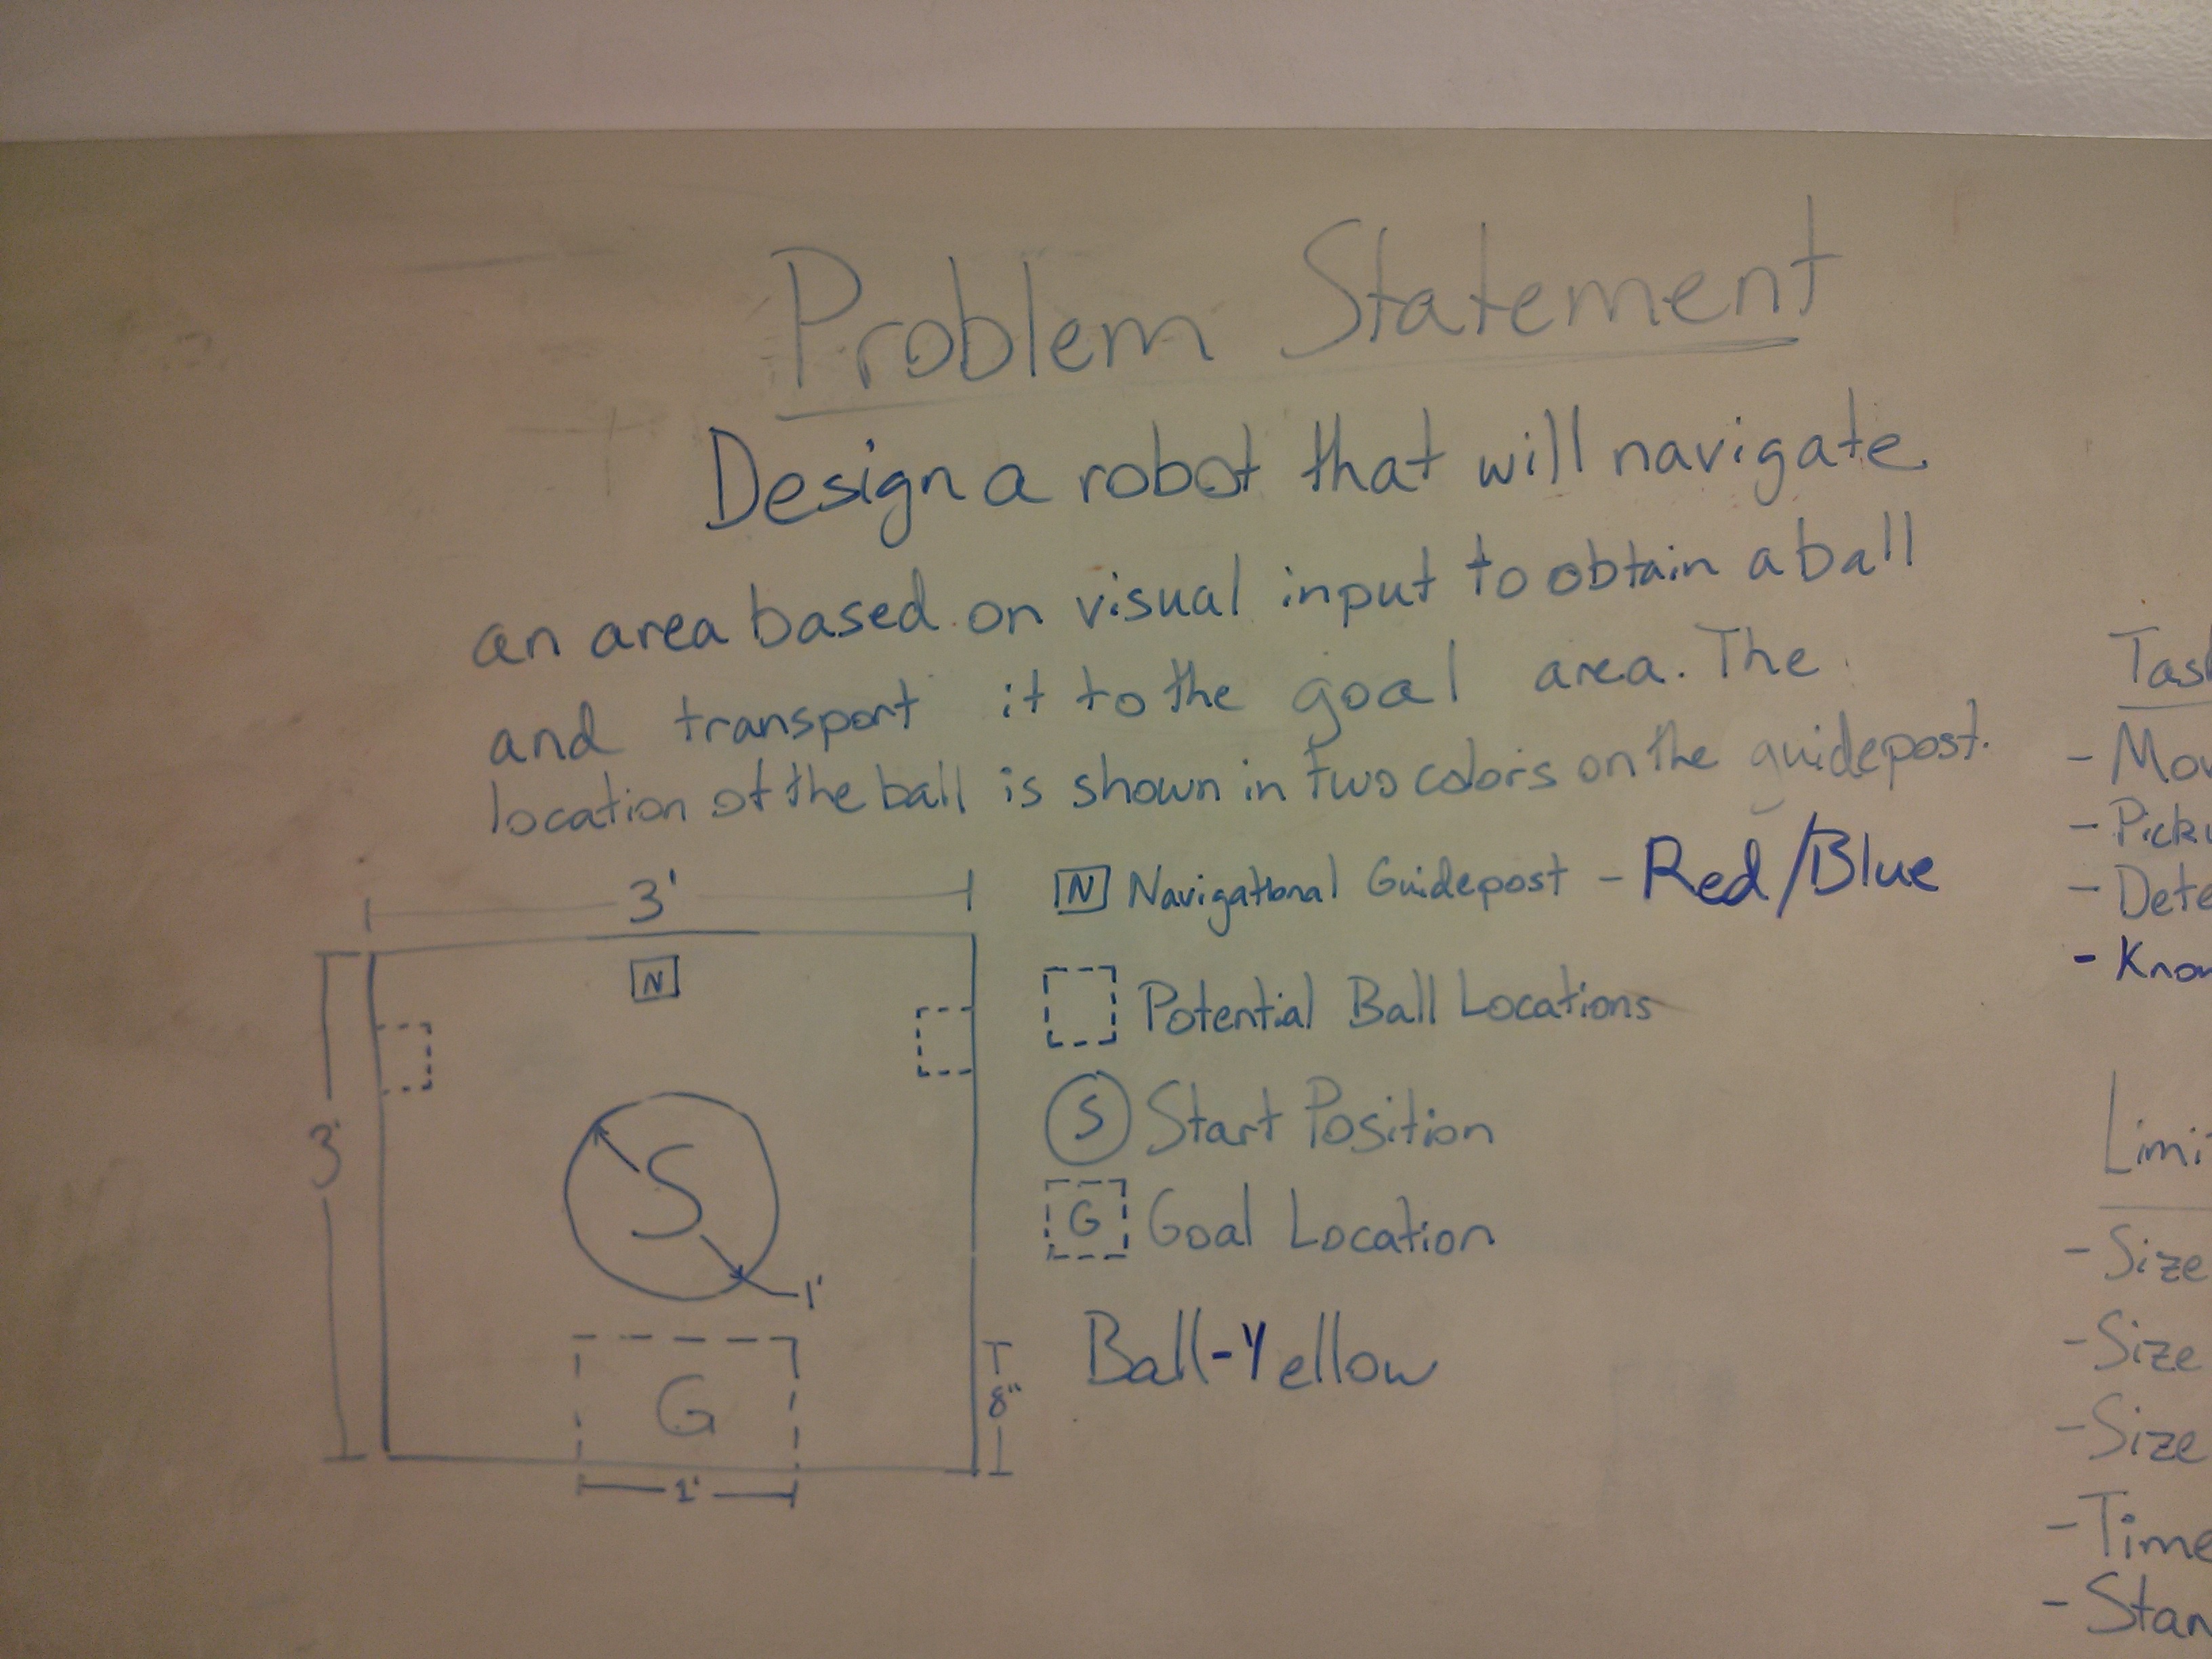 Problem Statement
Design a robot that will navigate
an area based on visual input to obtain a ball
and transport it to the goal area. The
location of the ball is shown in two colors on the guidepost.
3'
N
3'
S
1'
G
8"
1'
N Navigational Guidepost - Red/Blue
Potential Ball Locations
S Start Position
G Goal Location
Ball-Yellow
- Size
- Size
- Size
- Time